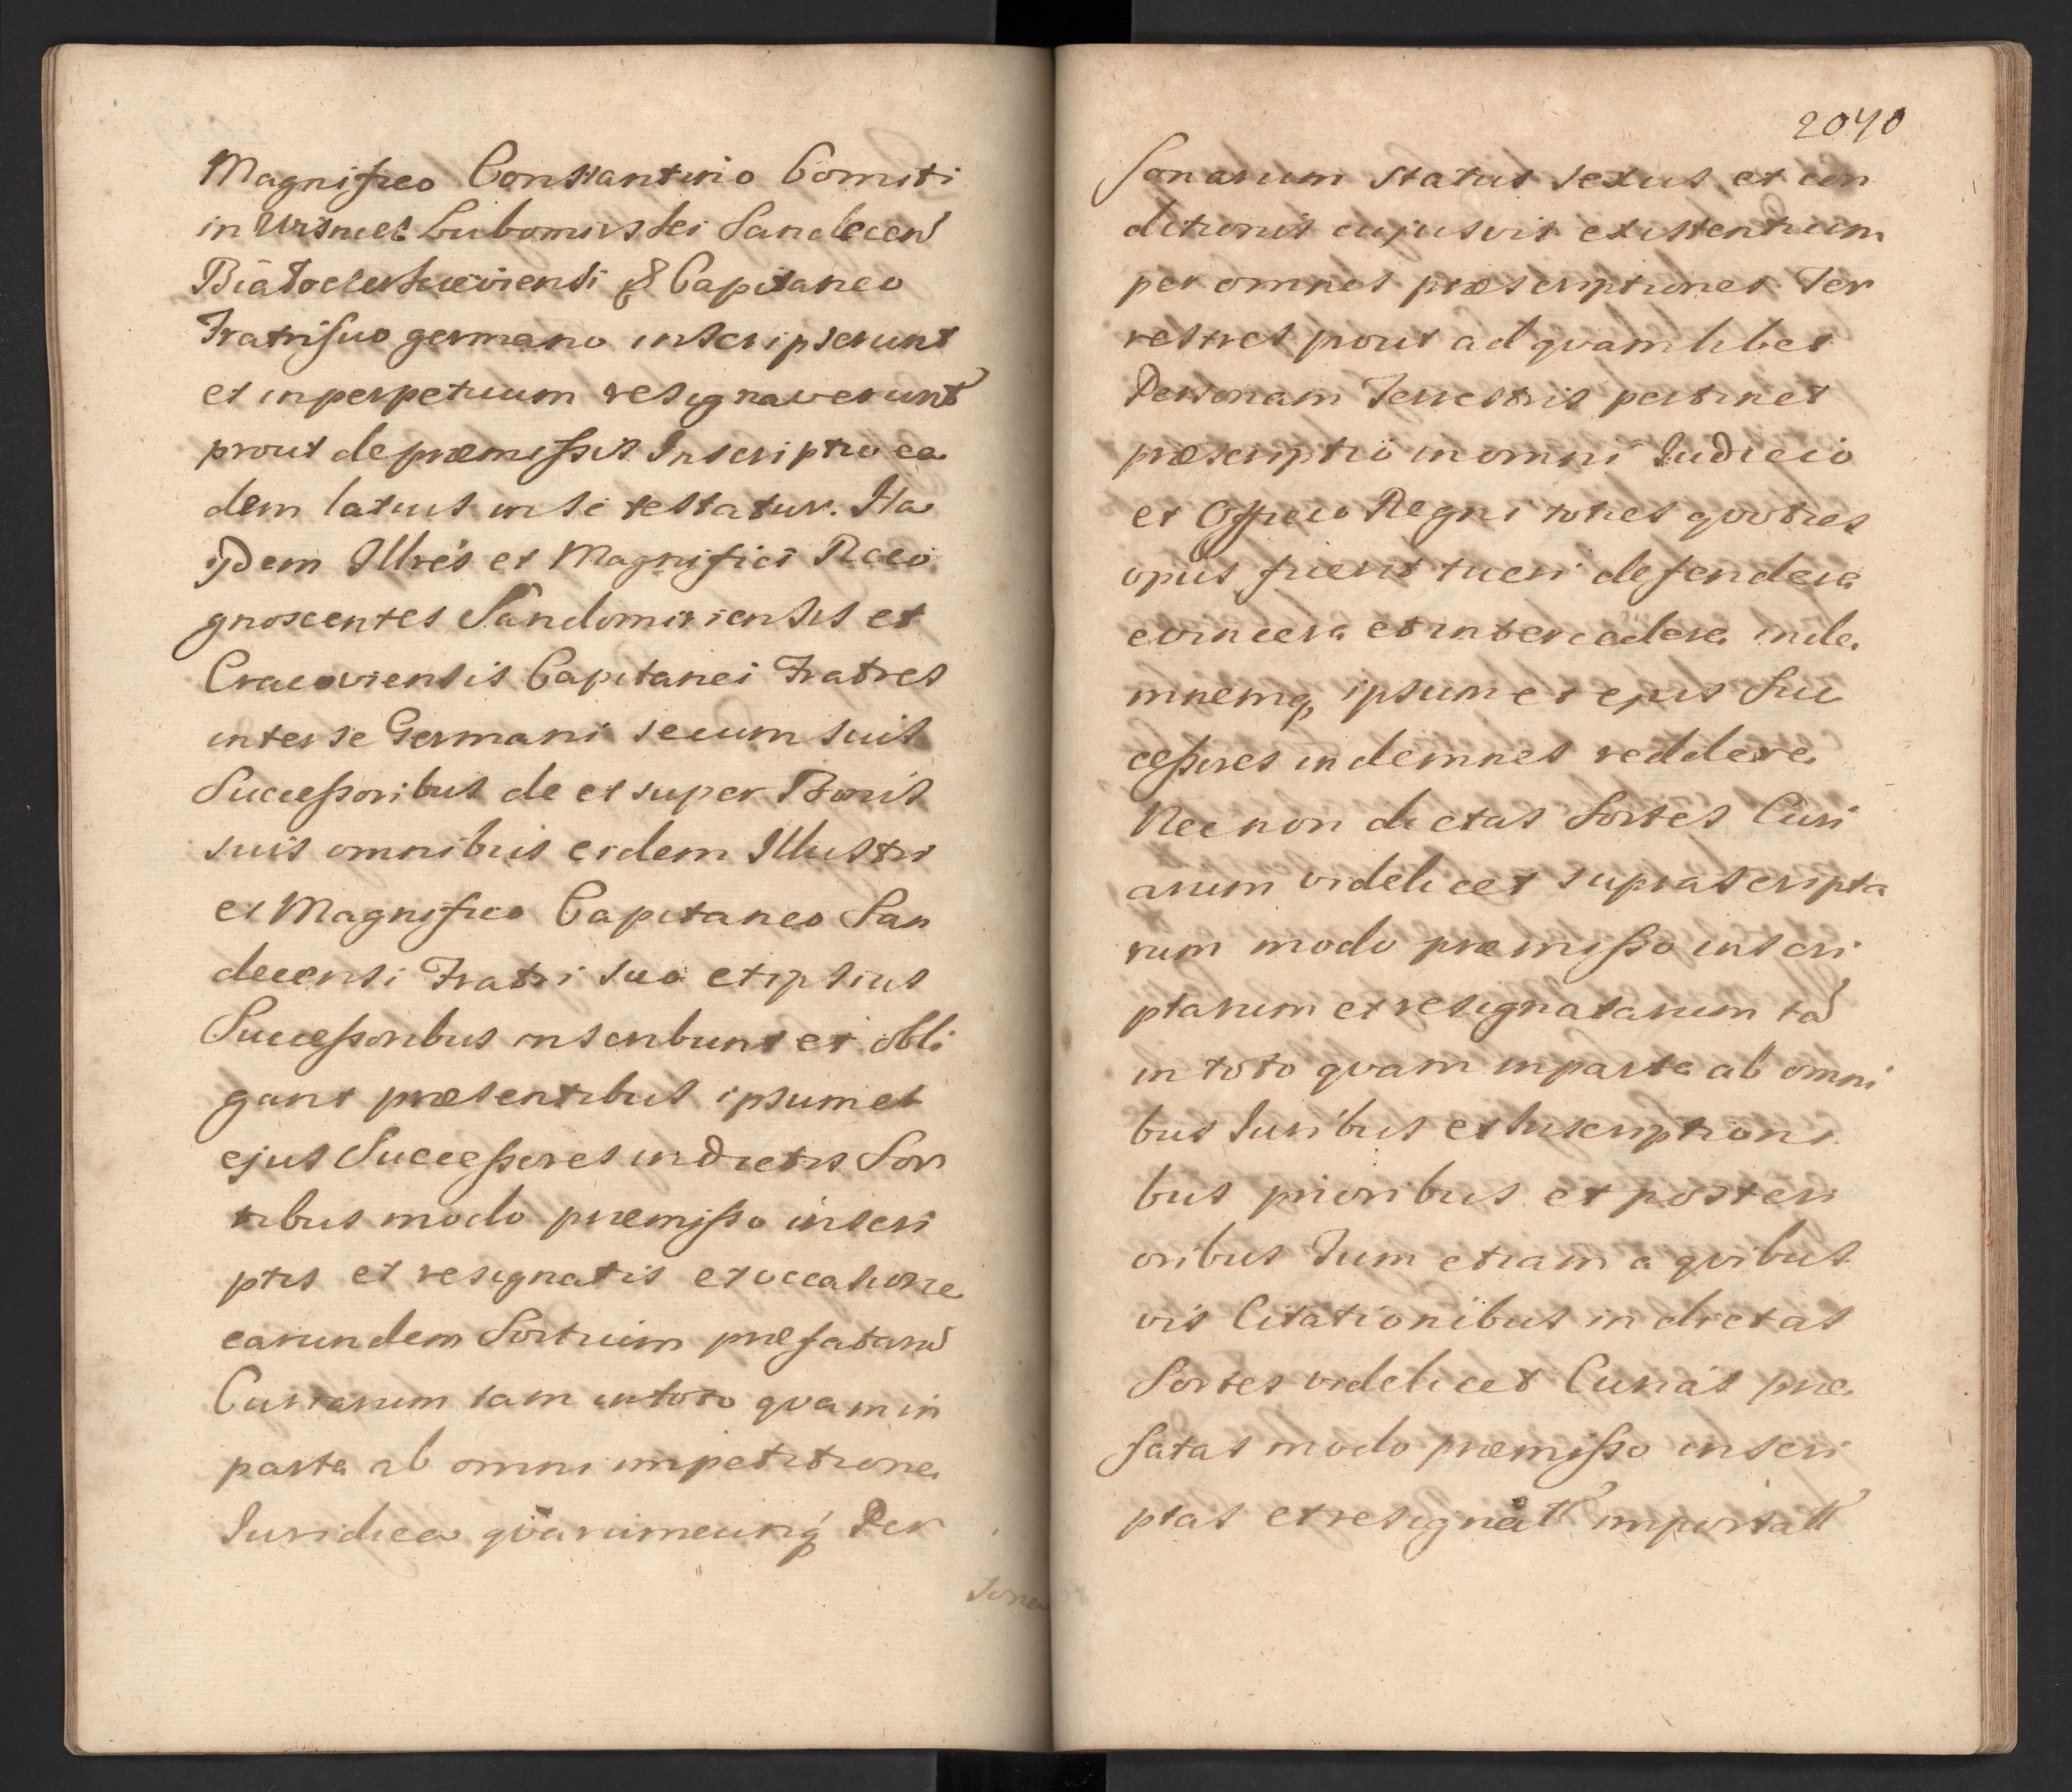 Magnifico Constantino Comiti
in Wisnicz Lubomirski Sandecen
Białocerkieviensi & Capitaneo
Fratri suo germano inscripserunt
et in perpetuum resignaverunt
prout de præmissis Inscriptio ea
dem latius in se testatur. Ita
ijdem Illres et Magnifici Reco
gnoscentes Sandomiriensis et
Cracoviensis Capitanei Fratres
inter se Germani secum suis
Successoribus de et super Bonis
suis omnibus eidem Illustri
et Magnifico Capitaneo San
decensi Fratri suo et ipsius
Successoribus inscribunt et obli
gant præsentibus ipsum et
ejus Successores in dictis Sor
tibus modo præmisso inscri
ptis et resignatis et occasione
earundem Sortium præfatarū
Curiarum tam in toto qvam in
parte ab omni impetitione
Iuridica qvarumcunq́ Per
sona
2040
sonarum status sexus et con
ditionis cujusvis existentium
per omnes præscriptiones Ter
restres prout ad qvamlibet
Personam Terrestris pertinet
præscriptio in omni Iudicio
et Officio Regni toties qvoties
opus fuerit tueri defendere
evincere et intercedere inde
mnemq ipsum et ejus Suc
cessores indemnes reddere
Nec non dictas Sortes Curi
arum videlicet suprascripta
rum modo præmisso inscri
ptarum et resignatarum tā
in toto qvam in parte ab omni
bus Iuribus et Inscriptioni
bus prioribus et posteri
oribus Tum etiam a qvibus
vis Citationibus in dictas
Sortes videlicet Curias præ
fatas modo præmisso inscri
ptas et resignatt importatt